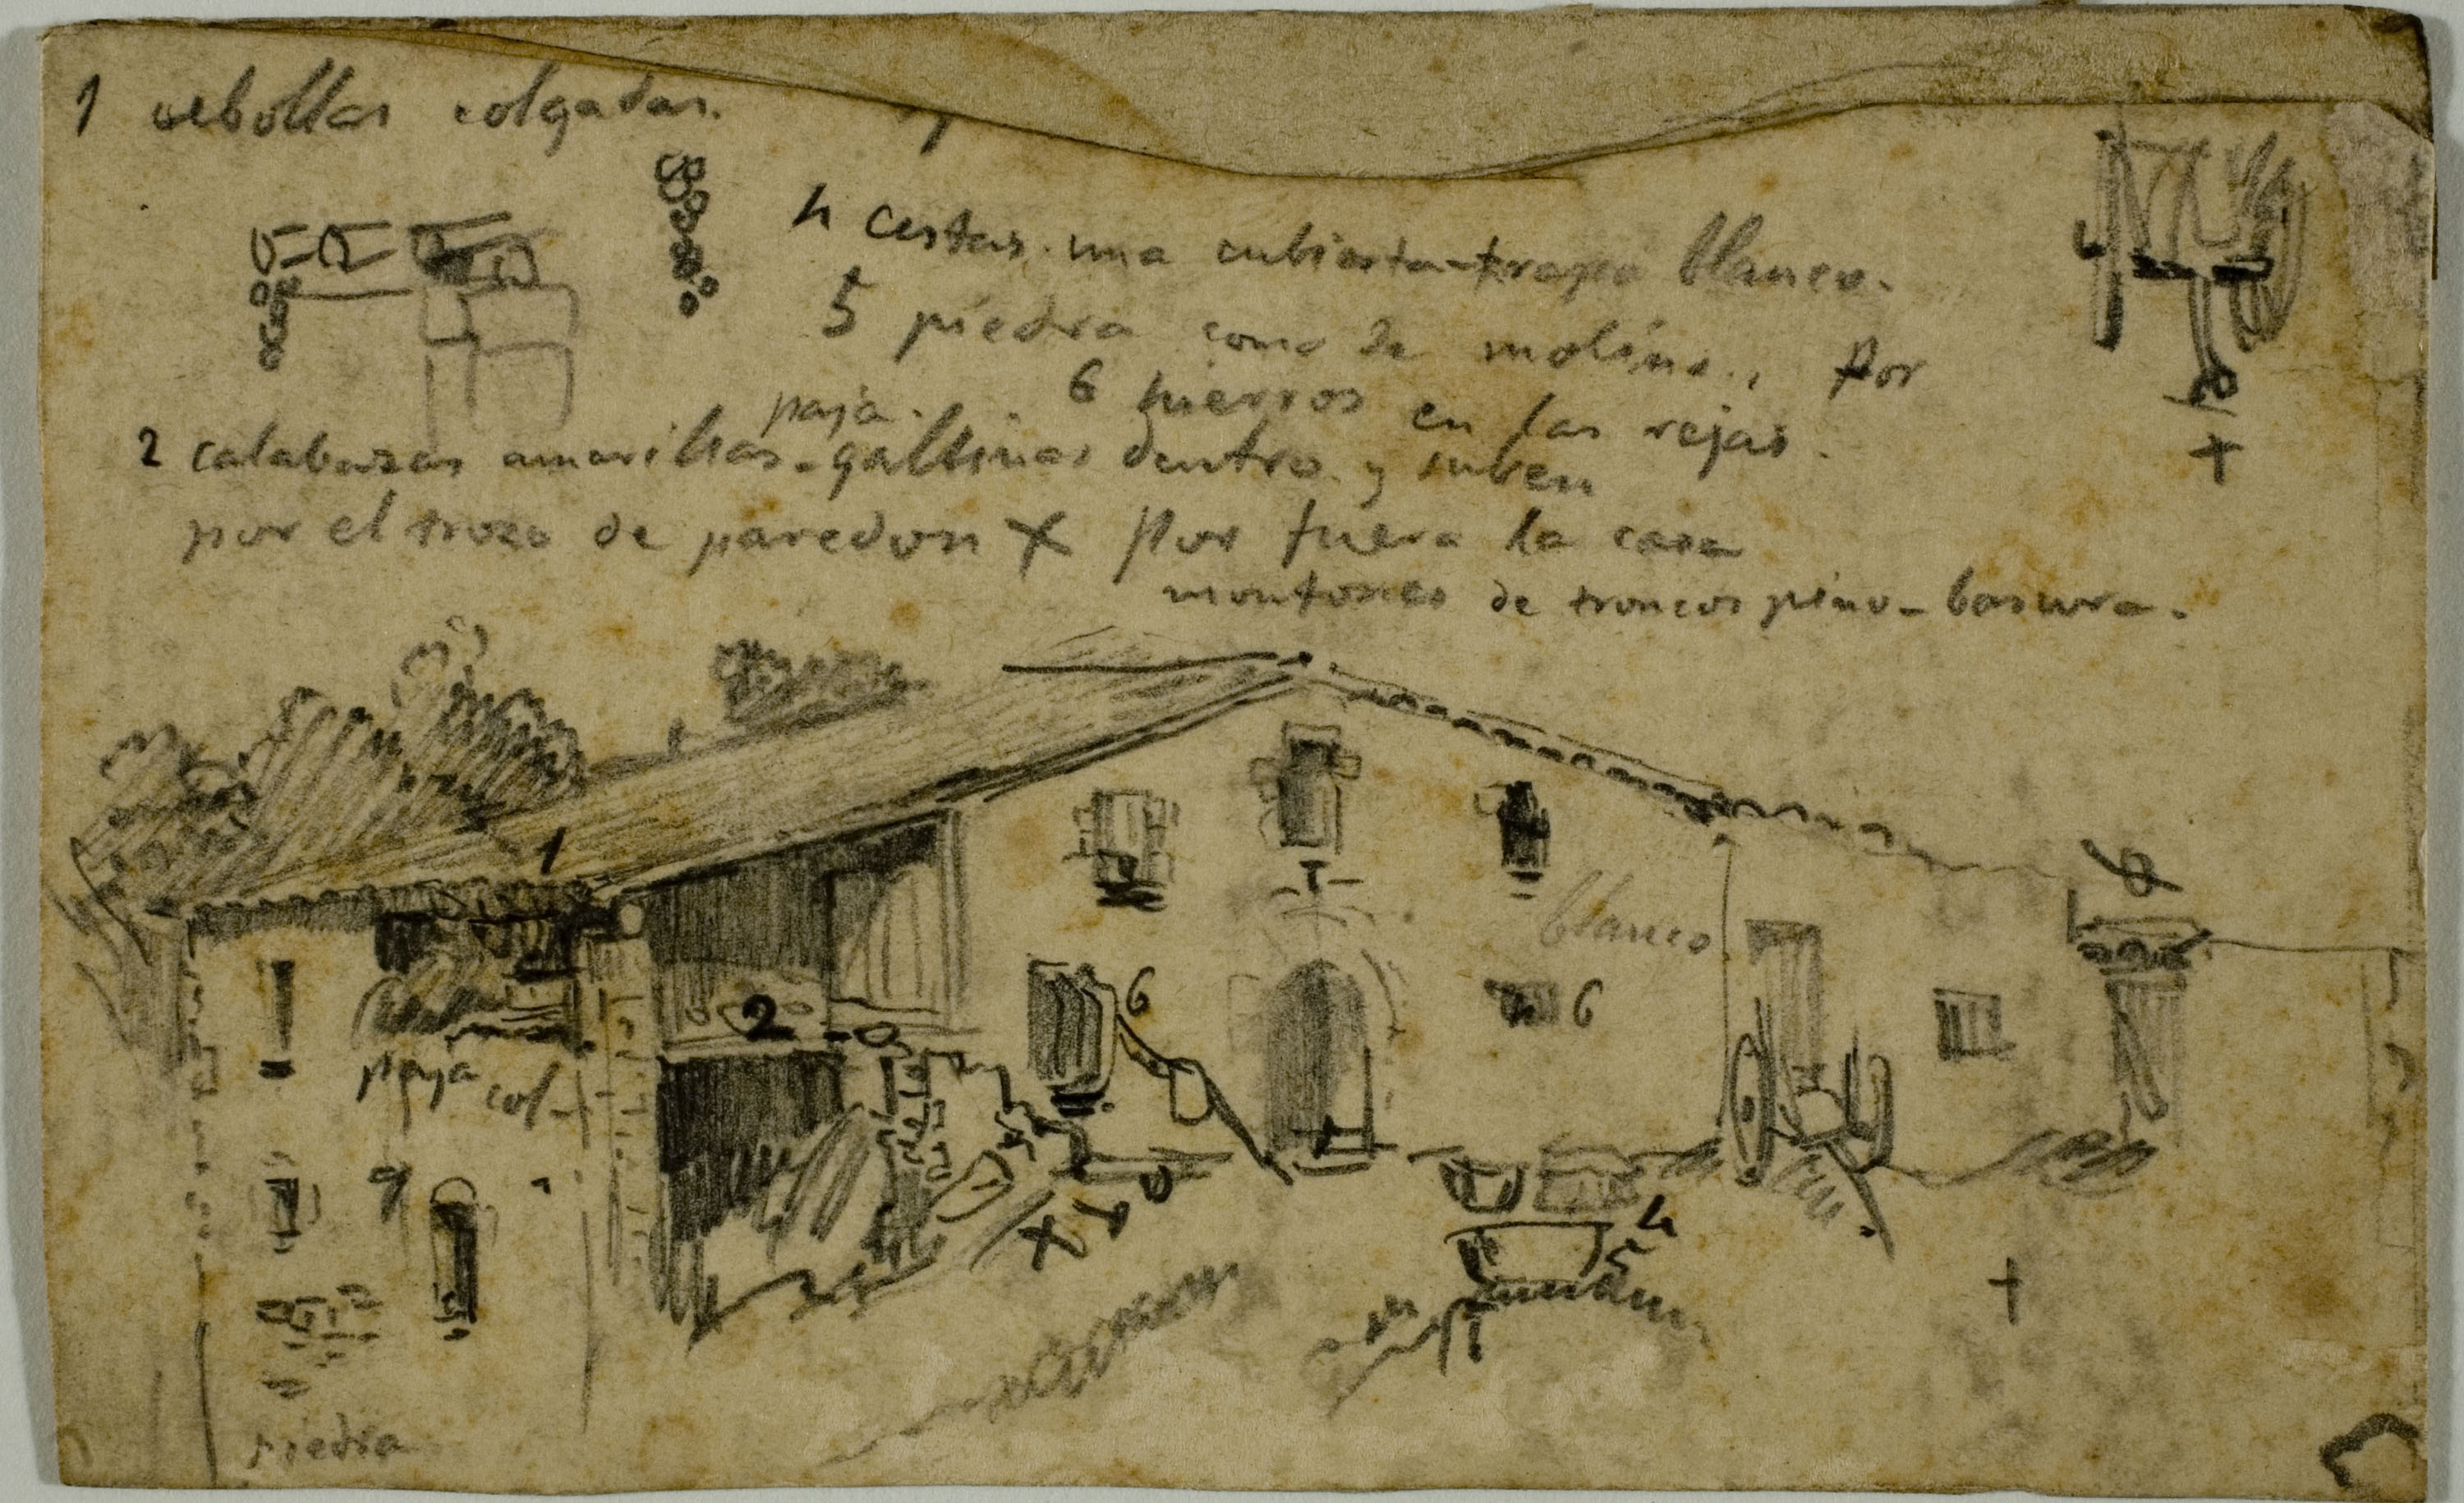 1 cebollas colgadas.
4 cestas. una cubierta-trapo blanco.
5 piedra como de molino., Por
paja. 6 hierros en las rejas.
2 calabazas amarillas-gallinas dentro y suben
por el trozo de paredon X Por fuera la casa
montones de troncos pino-basura.
X
1
blanco
2
6
6
paja
col-
X
4
5
†
piedra